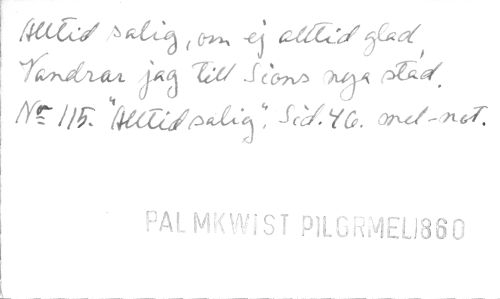 Alltid salig, om ej alltid glad,
Vandrar jag till Sions nya stad.
Nr 115. "Alltid salig". Sid. 46. mel-not.
PALMKWIST PILGRMEL1860